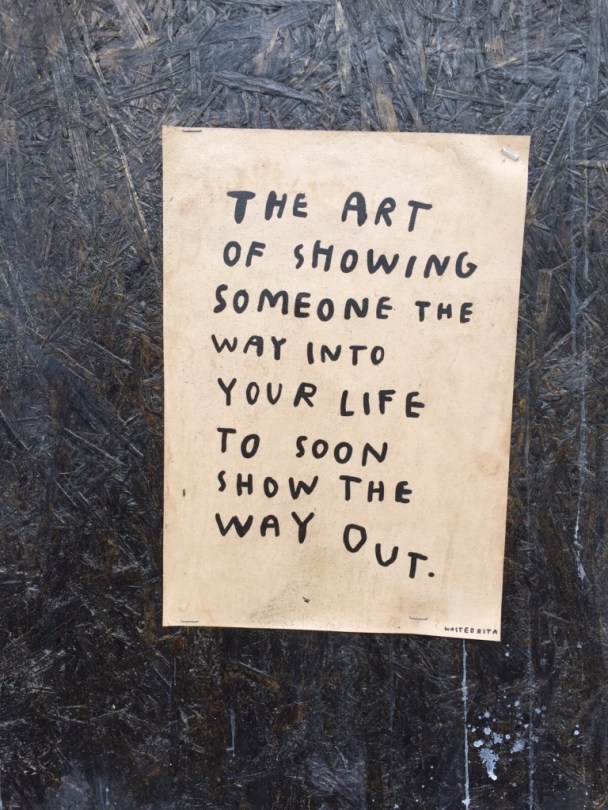 THE ART
OF SHOWING
SOMEONE THE
WAY INTO
YOUR LIFE
TO SOON
SHOW THE
WAY OUT.
WASTED RITA